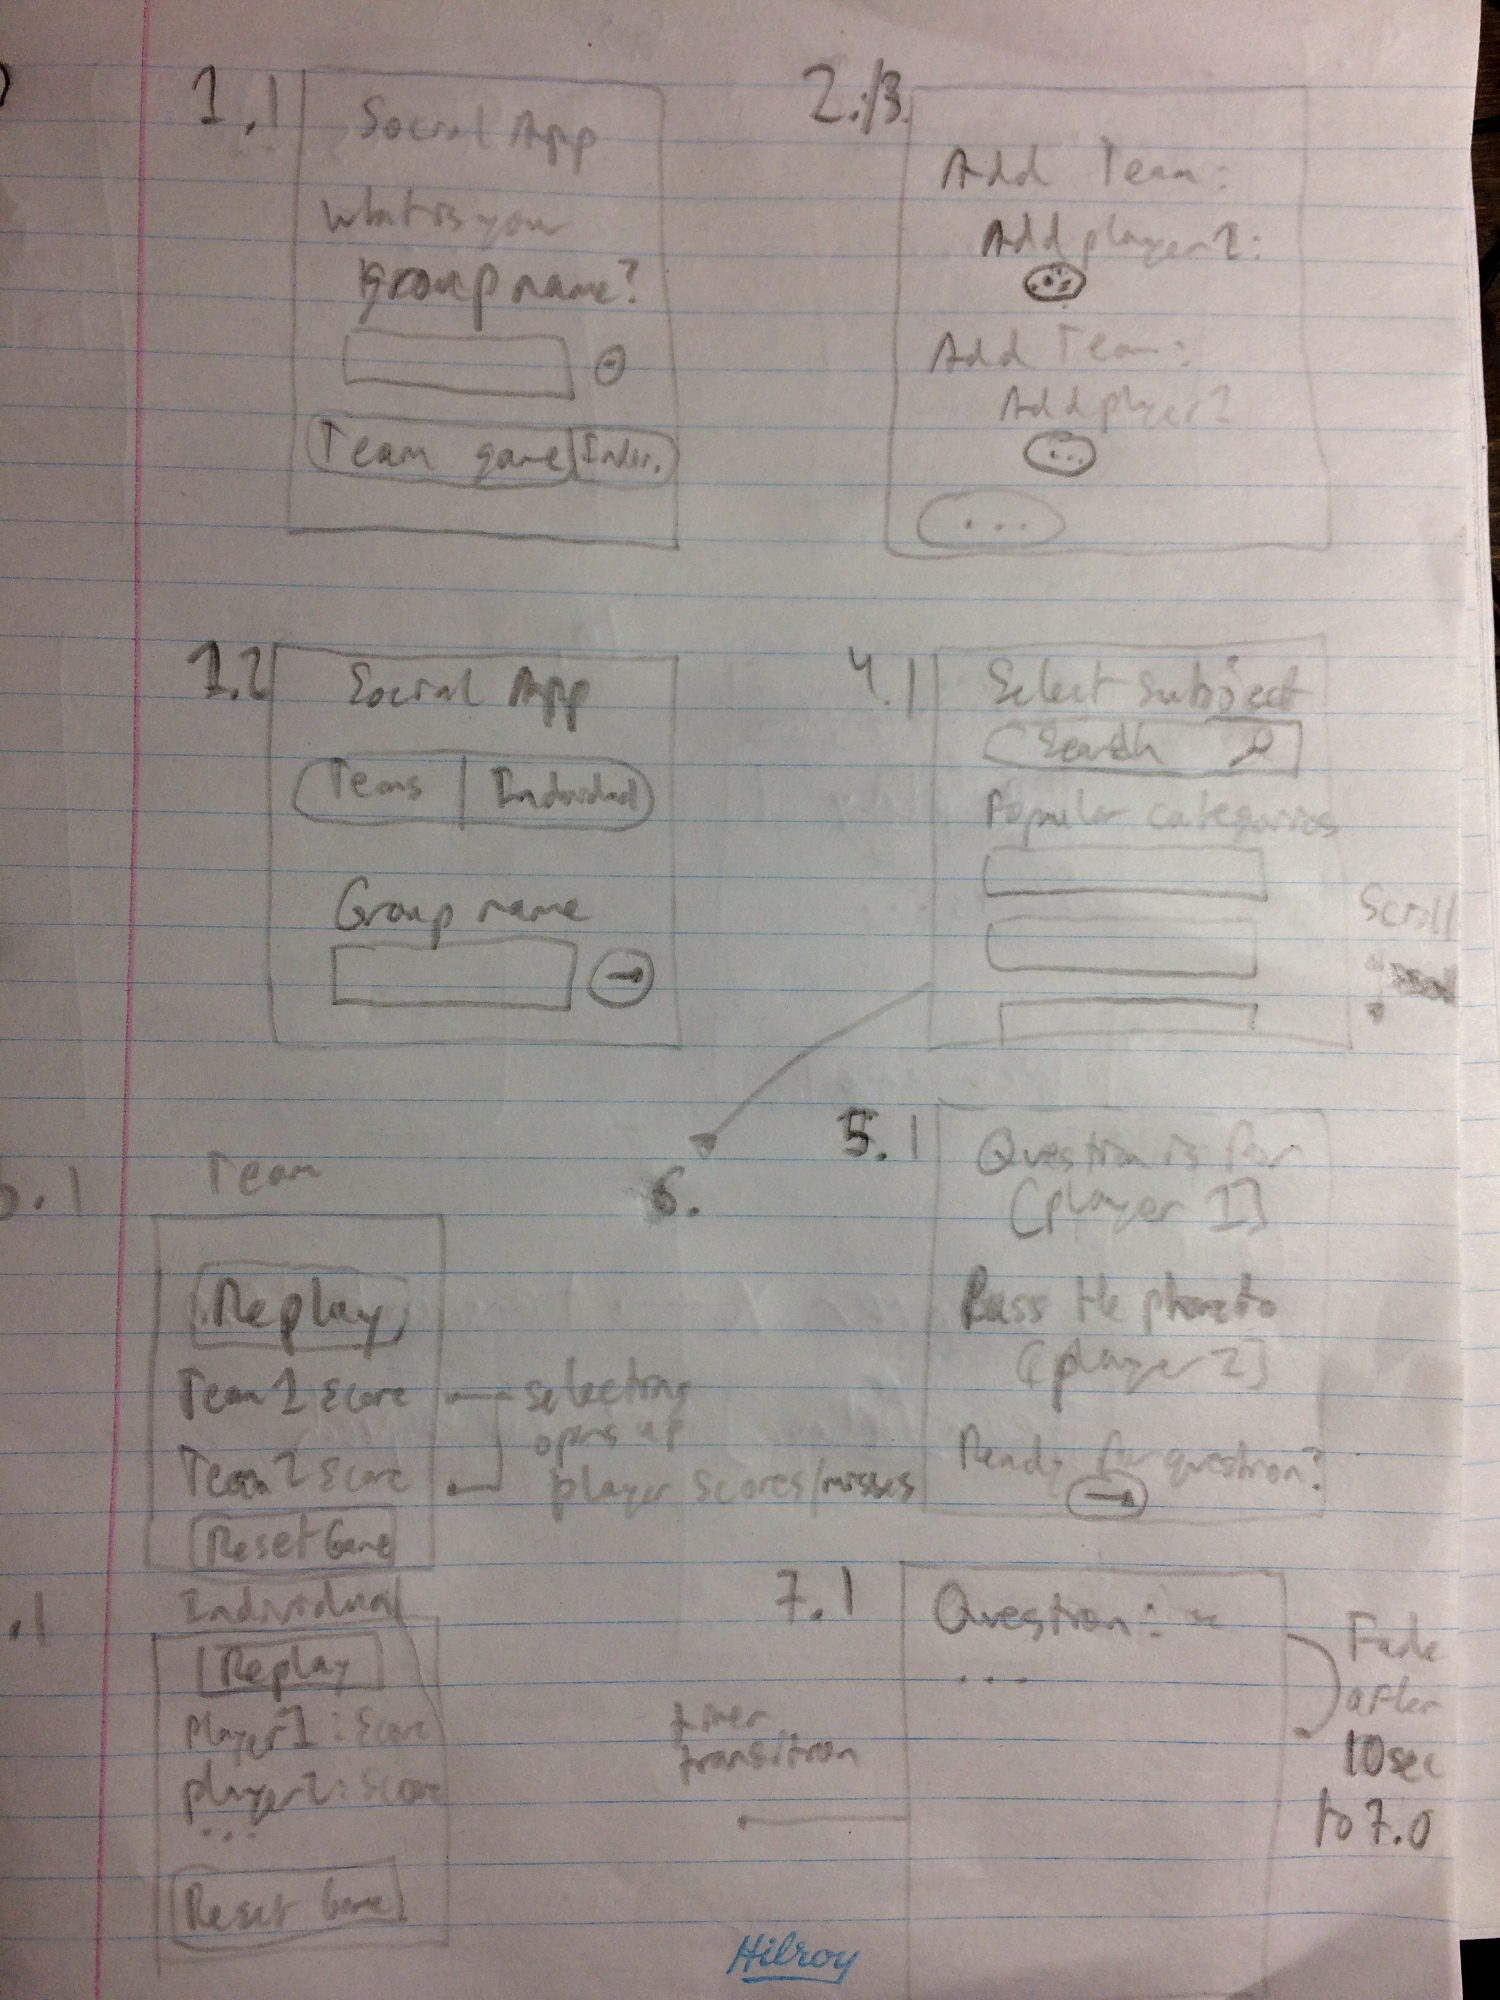 1.1
Social App
What is your
group name?
Team game Indiv.
2./3.
Add Team:
Add player 1:
...
Add Team:
Add player 1
...
...
1.2
Social App
Teams | Individual
Group name
4.1
Select subject
Search
Popular categories
Scroll
5.1
Question is for
[player 1]
Pass the phone to
[player 2]
Ready for question?
6.
.1
Team
Replay
Team 1 Score
Team 2 Score
Reset Game
selecting
opens up
player scores/misses
.1
Individual
Replay
Player 1: Score
player 2: Score
...
Reset Game
7.1
Question:
...
Fade
after
10sec
to 7.0
timer
transition
Hilroy